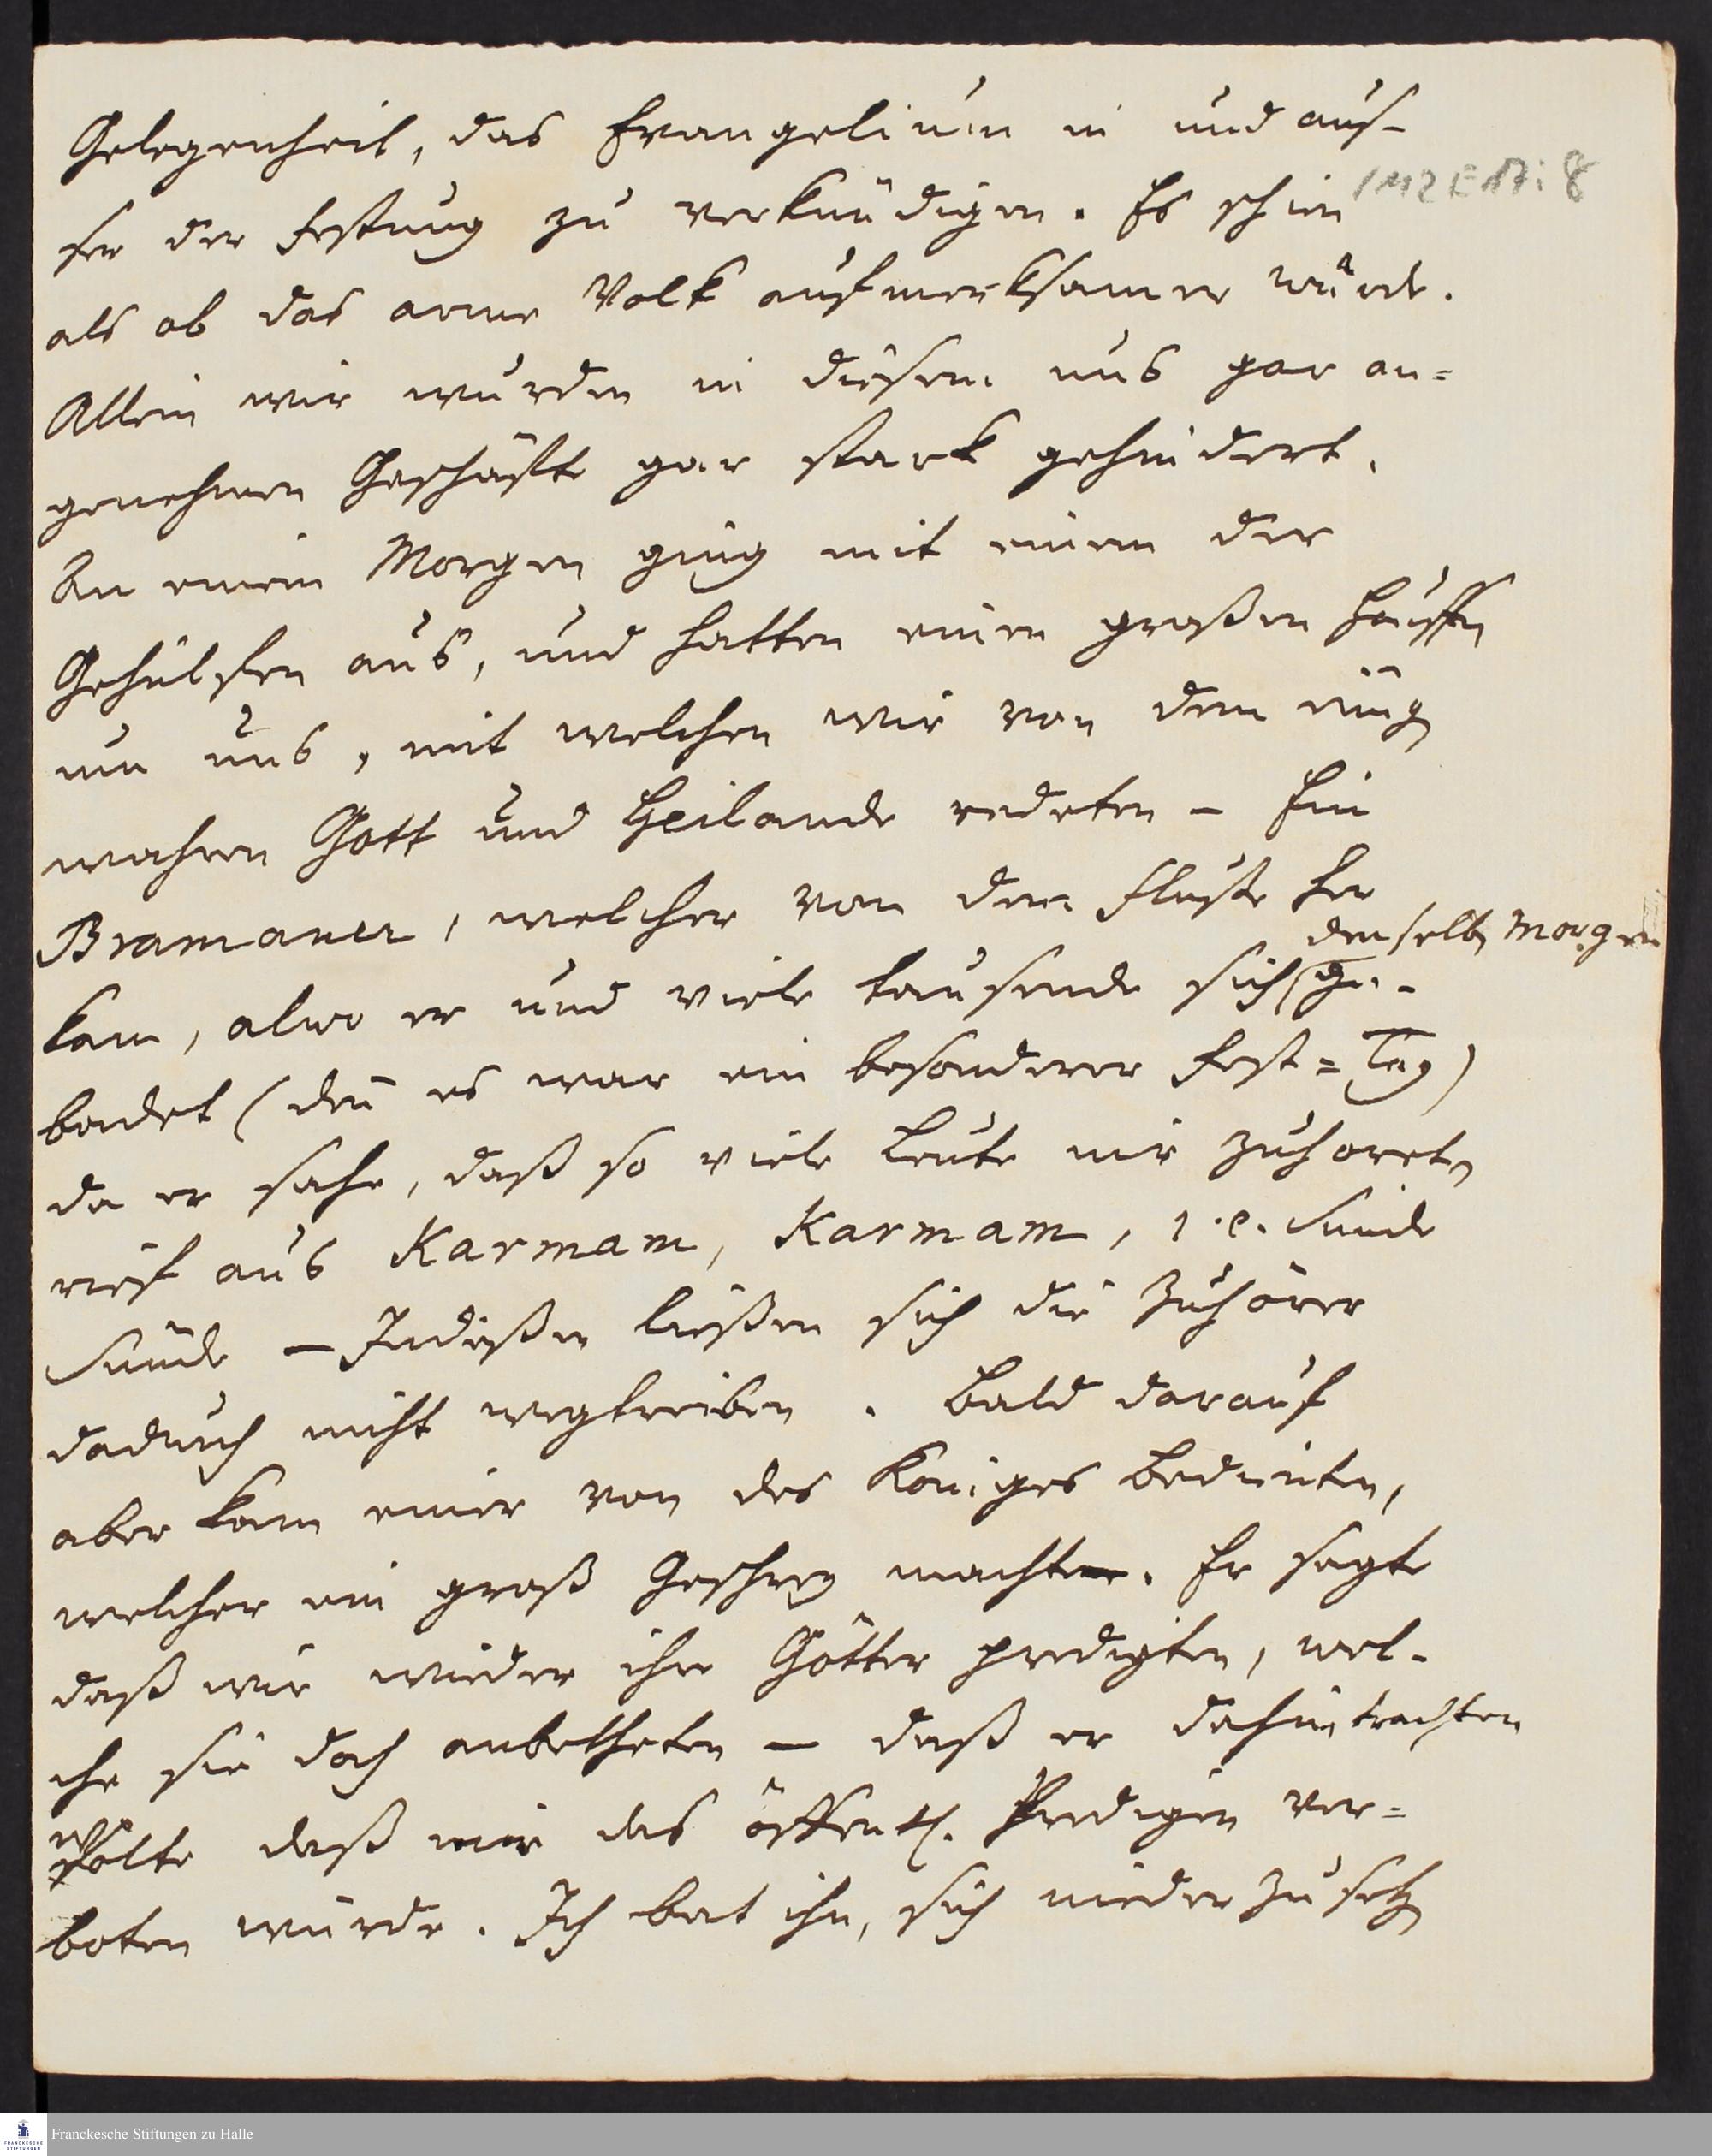 Gelegenheit, das Evangelium in und aus-
ser der Festung zu verkündigen. Es schien
1 M2 E 17 : 8
als ob das arme Volk aufmerksamer würde.
Allein wir wurden in diesem uns gar an=
genehmen Geschäfte gar stark gehindert.
An einem Morgen ging mit einem der
Gehülfen aus, und hatten einen großen Hauffen
um uns, mit welchen wir von dem einig
wahren Gott und Heilande redeten – Ein
Bramaner, welcher von dem Fluße her
denselb Morgen
kam, alwo er und viele tausende sich ge-
badet (den̄ es war ein besonderer Fest=Tag)
da er sahe, daß so viele Leute mir zuhoreten
rief aus Karmam, Karmam, i.e. Sünde
Sünde – Indeßen ließen sich die Zuhörer
dadurch nicht wegtreiben. Bald darauf
aber kam einer von des Königes Bedienten,
welcher ein groß Geschrey machte. Er sagte
daß wir wieder ihre Götter predigten, wel-
che sie doch anbetheten – daß er dahin trachten
wolte daß mir das öffentl. Predigen ver=
boten würde. Ich bat ihn, sich nieder zu setzen
Franckesche Stiftungen zu Halle